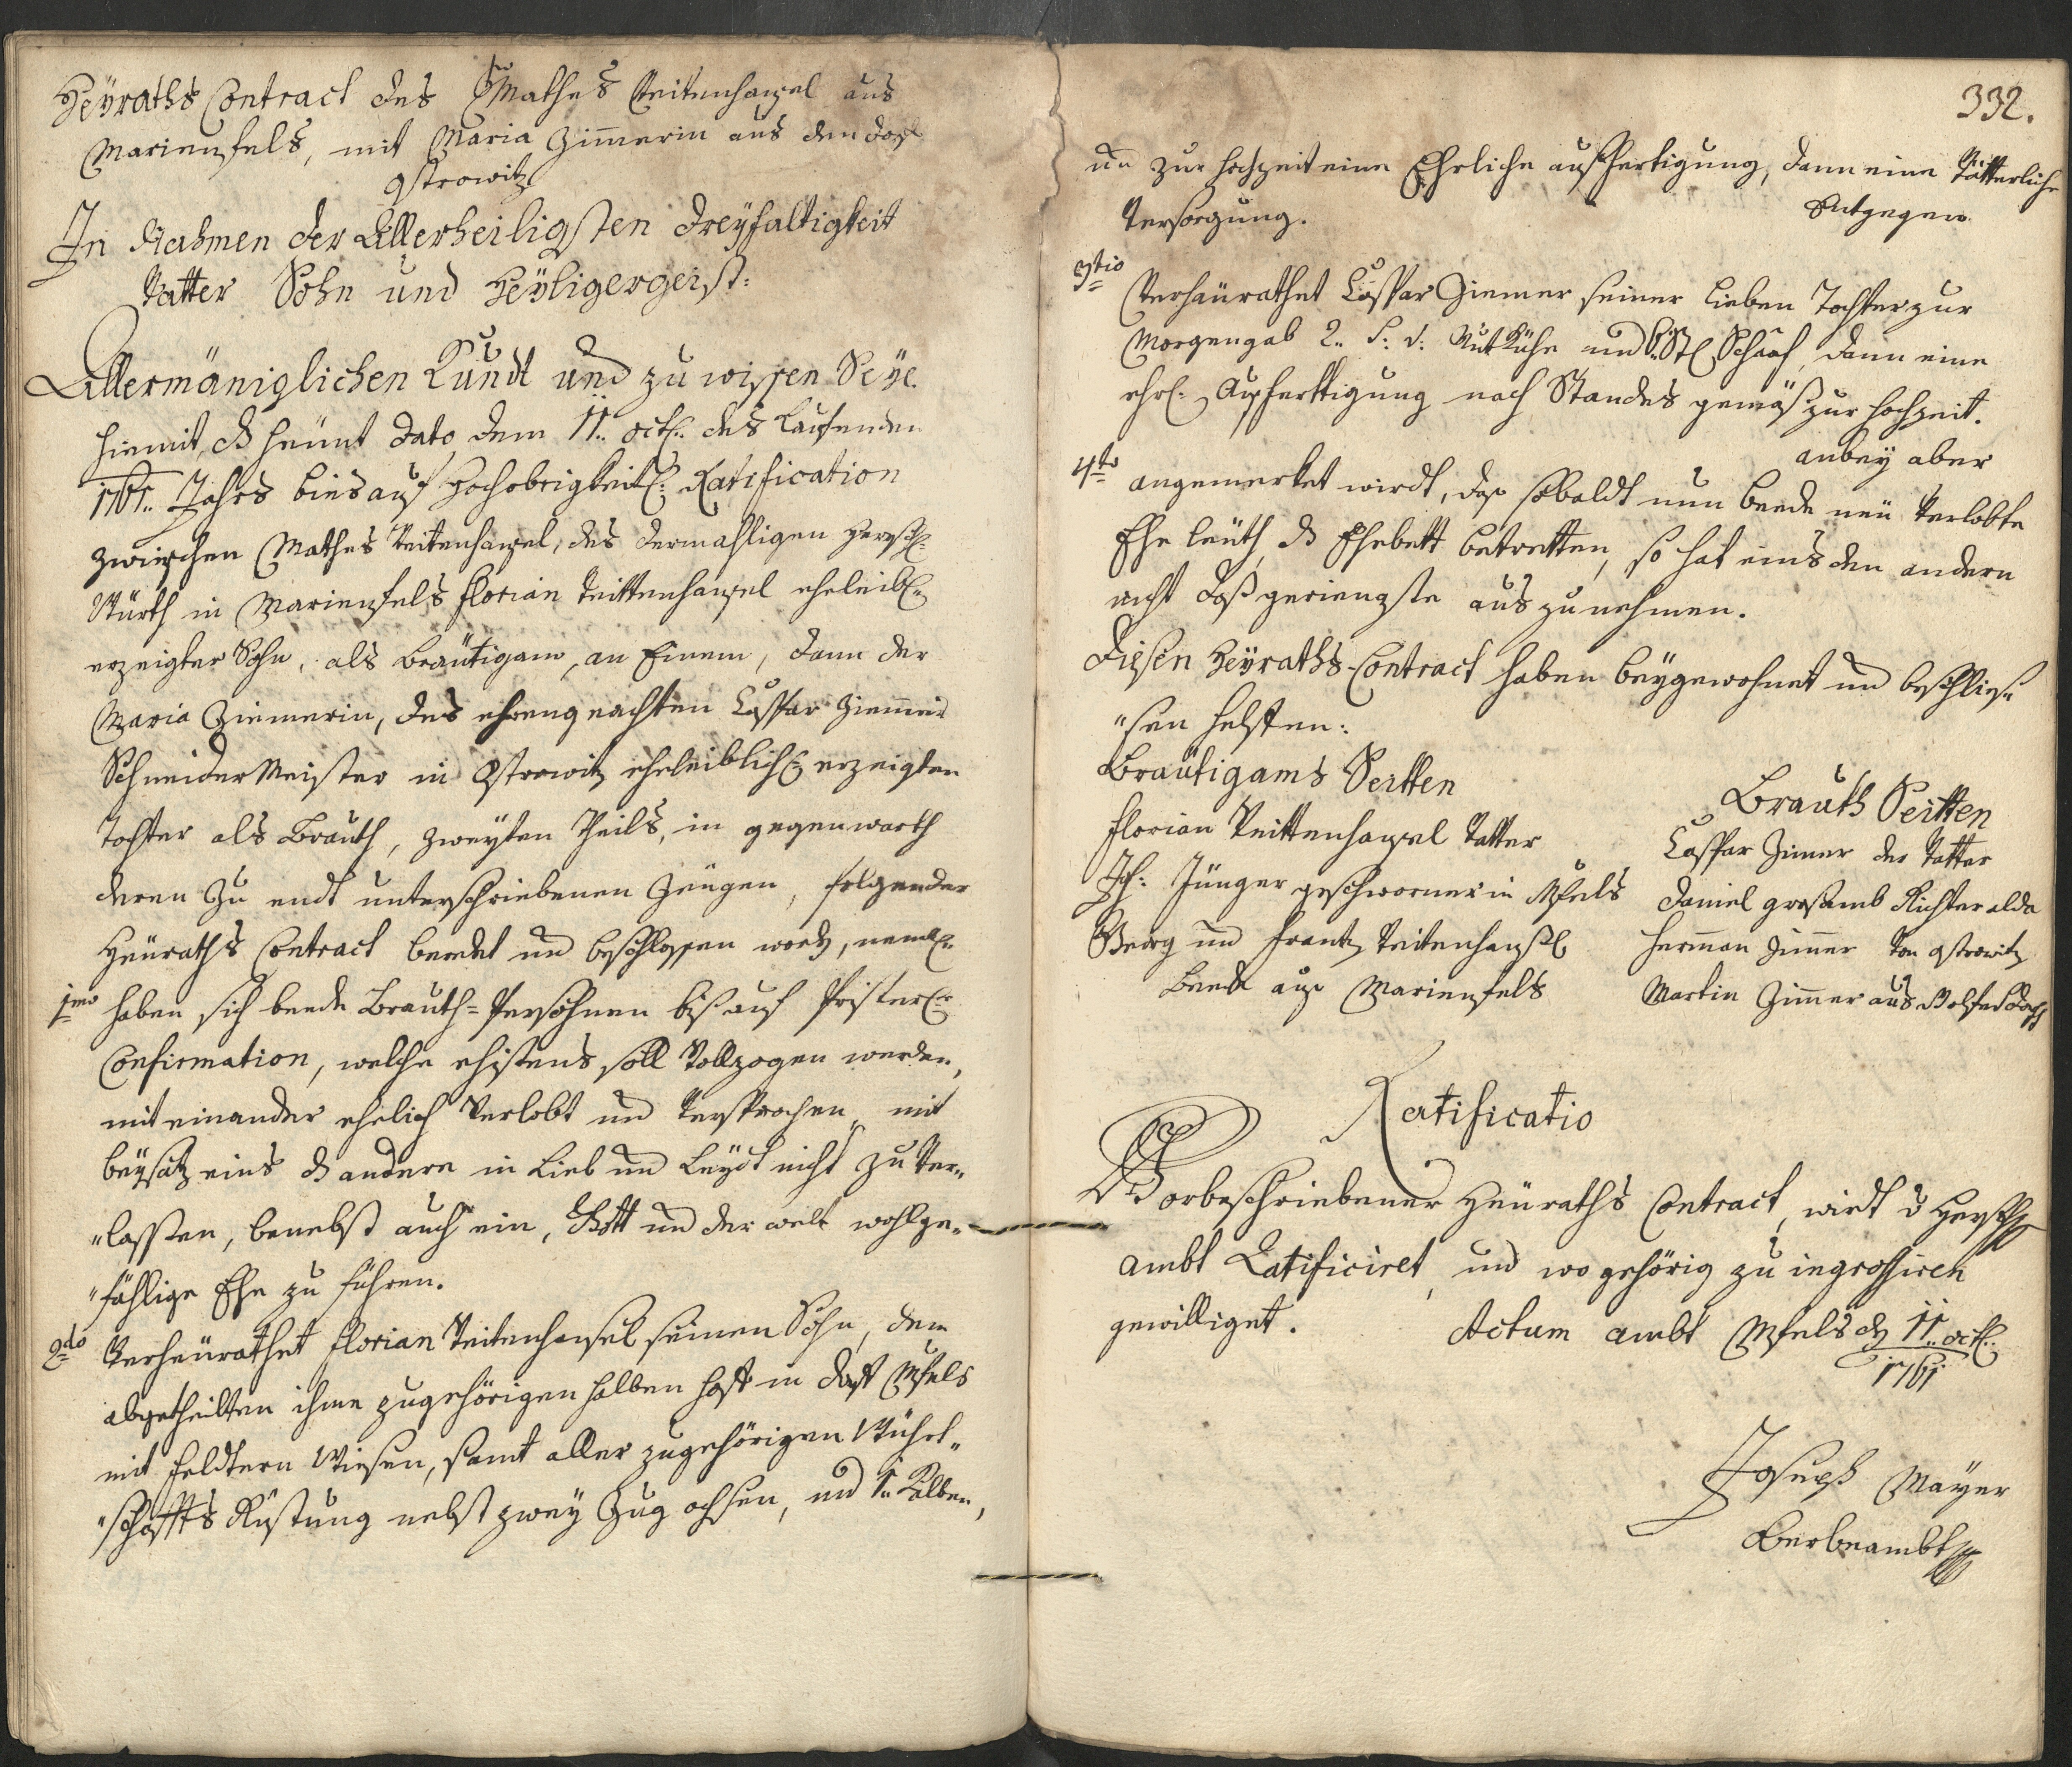 Heÿraths Contract des Mathes Teitenhansel aus
Marienfels, mit Maria Zim̄erin aus dem dorf
Ostrowitz
In Nahmen der Allerheiligsten Dreyfaltigkeit
Vatter Sohn und Heÿligergeist:
Allermäniglichen Kundt und zu wissen Seÿe
hiemit, dz heünt dato dem 11.. octb: des Laufenden
1761.. Jahrs bies auf Hochobrigkeitl: Ratification
zwischen Mathes Teitenhansel, des dermahligen Herschl:
Würth in Marienfels Florian Teittenhansel eheleibl:
erzeigter Sohn, als Bräutigam, an Einem, dann der
Maria Ziemerin, des ehrengeachten Caspar Ziemer
Schneider Meister in Ostrowitz eheleiblich erzeigten
Tochter als Brauth, zweyten Theils, in gegenwarth
deren Zu endt unterschriebenen Zeugen, folgender
Heuraths Contract beredet und beschlossen word, neml:
1mo haben sich beede Brauth-Persohnen biß auf Pristerl:
Confirmation, welche ehistens soll Vollzogen werden,
mit einander ehelich Verlobt und Versprochen, mit
beÿsatz eins dz andere in Lieb und Leydt nicht zu Ver„
„lassen, benebst auch ein, Gott und der welt wohlge„
„fählige Ehe zu führen.
2do Verheurathet Florian Teitenhansel seinen Sohn, dem
abgetheilten ihme zugehörigen halben Hoff in dorf Mfels
mit Feldtern Wiesen, samt aller zugehörigen Würt„
„schaffts Rüstung nebst zwey Zug ochsen, und 1.. Kalben,
332.
und zur Hochzeit eine Ehrliche ausfertigung, dann eine Vätterliche
Versorgung. Entgegen
3tio Verheürathet Caspar Ziemer seiner lieben Tochter zur
Morgengab 2.. S: V: Nutz Kühe und Stl Schaaf, dann eine
ehrl: Ausferttigung nach Standes gemäß zur Hochzeit.
anbey aber
4to angemerket wirdt, daß sobaldt nun beede neü Verlobte
Ehe leüth, dz Ehebett betretten, so hat eins den andern
nicht daß geringste aus zu nehmen.
Diesen Heÿraths-Contract haben beÿgewohnet und beschlies„
„sen helffen:
Bräutigams Seitten
Florian Teittenhansel Vatter
Joh: Jünger geschworner in Mfels
Georg und Frantz Teitenhansl
beede aus Marienfels
Brauth Seitten
Caspar Zimer der Vatter
Daniel Richter alda
Herman Zimer Von Ostrowitz
Martin Zimer aus
Ratificatio
Vorbeschriebener Heuraths Contract, wirdt Herschl
ambt Ratificiret, und wo gehörig zu ingrossiren
gewilliget. Actum ambt Mfels den 11.. octb:
1761
Joseph Mayer
Oberbeambter